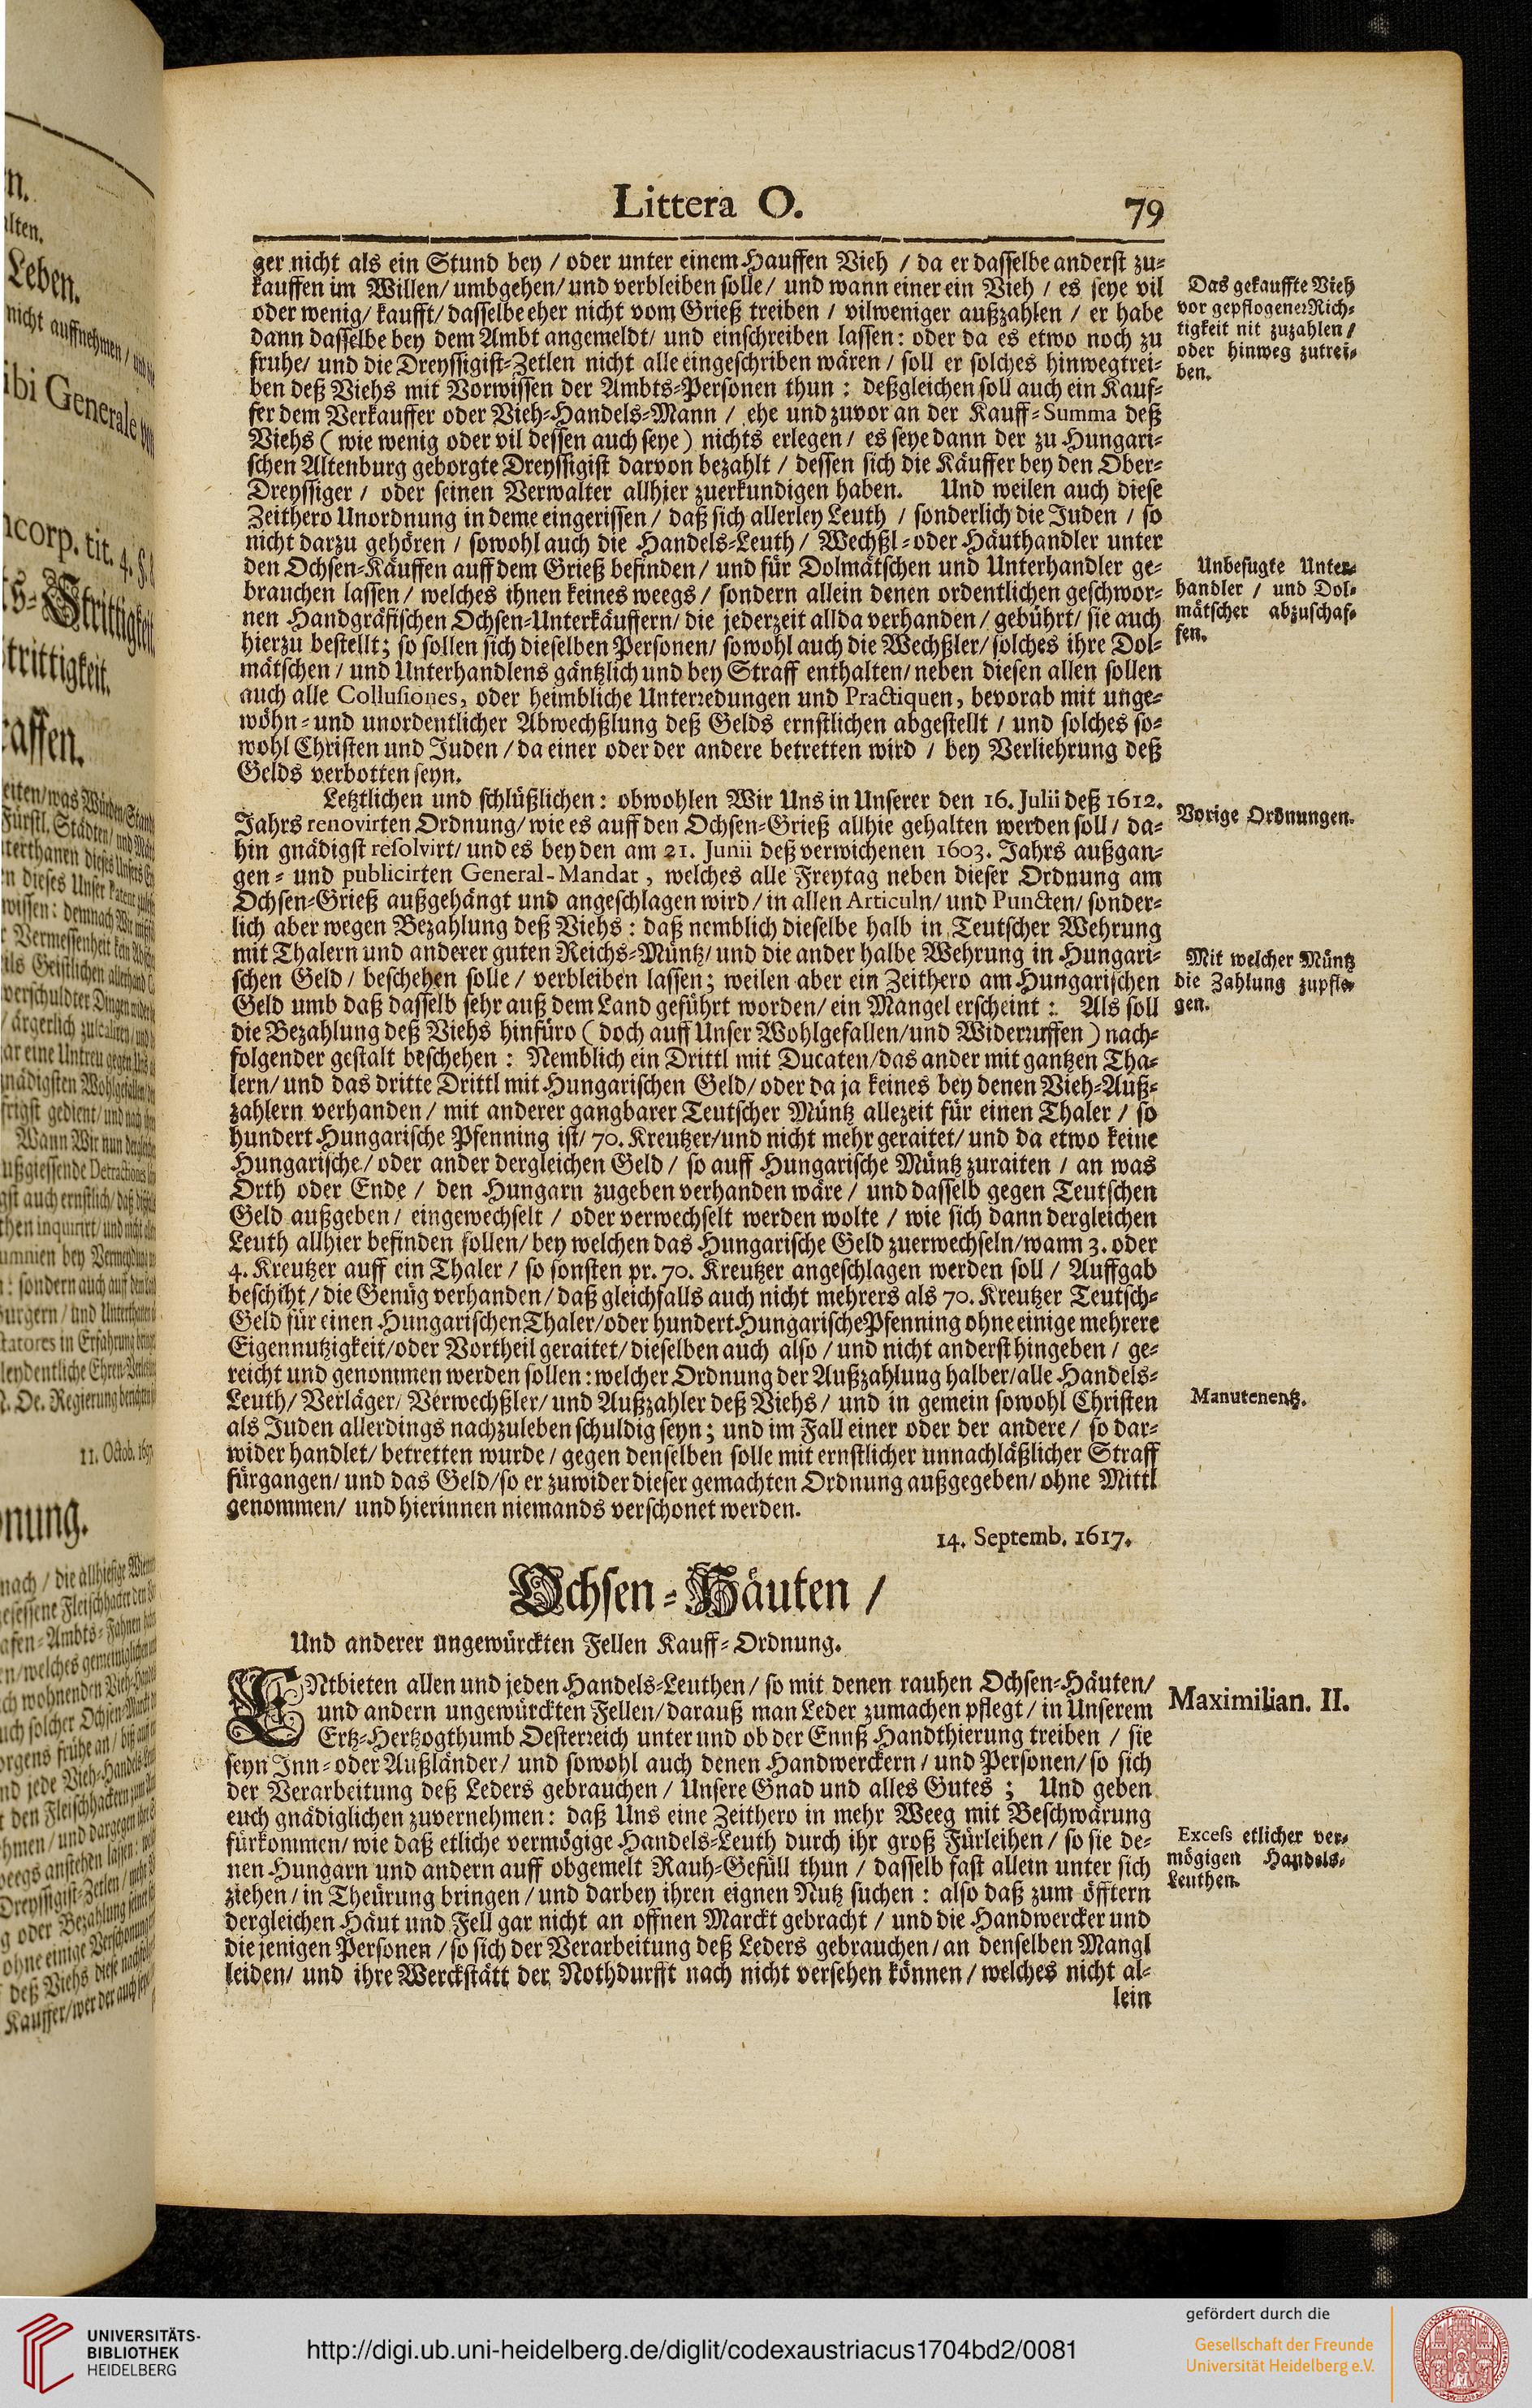 Littera O. 79
ger nicht als ein Stund bey / oder unter einem Hauffen Vieh / da er dasselbe anderst zu-
kauffen im Willen/ umbgehen/ und verbleiben solle/ und wann einer ein Vieh / es seye vil
oder wenig/ kaufft/ dasselbe eher nicht vom Grieß treiben / vilweniger außzahlen / er habe
dann dasselbe bey dem Ambt angemeldt/ und einschreiben lassen: oder da es etwo noch zu
fruhe/ und die Dreyssigist-Zetlen nicht alle eingeschriben wären / soll er solches hinwegtrei-
ben deß Viehs mit Vorwissen der Ambts-Personen thun : deßgleichen soll auch ein Kauf-
fer dem Verkauffer oder Vieh-Handels-Mann / ehe und zuvor an der Kauff-Summa deß
Viehs (wie wenig oder vil dessen auch seye) nichts erlegen / es seye dann der zu Hungari-
schen Altenburg geborgte Dreyssigist darvon bezahlt / dessen sich die Käuffer bey den Ober-
Dreyssiger / oder seinen Verwalter allhier zuerkundigen haben. Und weilen auch diese
Zeithero Unordnung in deme eingerissen / daß sich allerley Leuth / sonderlich die Juden / so
nicht darzu gehören / sowohl auch die Handels-Leuth / Wechßl-oder Häuthandler unter
den Ochsen-Käuffen auff dem Grieß befinden/ und für Dolmätschen und Unterhandler ge-
brauchen lassen / welches ihnen keines weegs / sondern allein denen ordentlichen geschwor-
nen Handgräfischen Ochsen-Unterkäuffern/ die jederzeit allda verhanden / gebührt/ sie auch
hierzu bestellt; so sollen sich dieselben Personen/ sowohl auch die Wechßler/ solches ihre Dol-
mätschen / und Unterhandlens gäntzlich und bey Straff enthalten/ neben diesen allen sollen
auch alle Collusiones, oder heimbliche Unterredungen und Practiquen, bevorab mit unge-
wöhn-und unordentlicher Abwechßlung deß Gelds ernstlichen abgestellt / und solches so-
wohl Christen und Juden / da einer oder der andere betretten wird / bey Verliehrung deß
Gelds verbotten seyn.
Letztlichen und schlüßlichen: obwohlen Wir Uns in Unserer den 16. Julii deß 1612.
Jahrs renovirten Ordnung/ wie es auff den Ochsen-Grieß allhie gehalten werden soll / da-
hin gnädigst resolvirt/ und es bey den am 21. Junii deß verwichenen 1603. Jahrs außgan-
gen - und publicirten General-Mandat, welches alle Freytag neben dieser Ordnung am
Ochsen-Grieß außgehängt und angeschlagen wird / in allen Articuln/ und Puncten/ sonder-
lich aber wegen Bezahlung deß Viehs : daß nemblich dieselbe halb in Teutscher Wehrung
mit Thalern und anderer guten Reichs-Müntz/ und die ander halbe Wehrung in Hungari-
schen Geld / beschehen solle / verbleiben lassen; weilen aber ein Zeithero am Hungarischen
Geld umb daß dasselb sehr auß dem Land geführt worden/ ein Mangel erscheint : Als soll
die Bezahlung deß Viehs hinfüro (doch auff Unser Wohlgefallen/und Widerruffen) nach-
folgender gestalt beschehen : Nemblich ein Drittl mit Ducaten/das ander mit gantzen Tha-
lern/ und das dritte Drittl mit Hungarischen Geld/ oder da ja keines bey denen Vieh-Auß-
zahlern verhanden / mit anderer gangbarer Teutscher Müntz allezeit für einen Thaler / so
hundert Hungarische Pfenning ist/ 70. Kreutzer/und nicht mehr geraitet/ und da etwo keine
Hungarische / oder ander dergleichen Geld / so auff Hungarische Müntz zuraiten / an was
Orth oder Ende / den Hungarn zugeben verhanden wäre / und dasselb gegen Teutschen
Geld außgeben / eingewechselt / oder verwechselt werden wolte / wie sich dann dergleichen
Leuth allhier befinden sollen/ bey welchen das Hungarische Geld zuerwechseln/wann 3. oder
4. Kreutzer auff ein Thaler / so sonsten pr. 70. Kreutzer angeschlagen werden soll / Auffgab
beschiht / die Genüg verhanden / daß gleichfalls auch nicht mehrers als 70. Kreutzer Teutsch-
Geld für einen Hungarischen Thaler/oder hundert Hungarische Pfenning ohne einige mehrere
Eigennutzigkeit/oder Vortheil geraitet/ dieselben auch also / und nicht anderst hingeben / ge-
reicht und genommen werden sollen: welcher Ordnung der Außzahlung halber/alle Handels-
Leuth/ Verläger/ Verwechßler/ und Außzahler deß Viehs / und in gemein sowohl Christen
als Juden allerdings nachzuleben schuldig seyn; und im Fall einer oder der andere / so dar-
wider handlet/ betretten wurde / gegen denselben solle mit ernstlicher unnachläßlicher Straff
fürgangen/ und das Geld/so er zuwider dieser gemachten Ordnung außgegeben/ ohne Mittl
genommen/ und hierinnen niemands verschonet werden.
14. Septemb. 1617.
Ochsen-Häuten /
Und anderer ungewürckten Fellen Kauff-Ordnung.
ENtbieten allen und jeden Handels-Leuthen / so mit denen rauhen Ochsen-Häuten/
und andern ungewürckten Fellen/ darauß man Leder zumachen pflegt / in Unserem
Ertz-Hertzogthumb Oesterreich unter und ob der Ennß Handthierung treiben / sie
seyn Inn-oder Außländer/ und sowohl auch denen Handwerckern / und Personen/ so sich
der Verarbeitung deß Leders gebrauchen / Unsere Gnad und alles Gutes ; Und geben
euch gnädiglichen zuvernehmen: daß Uns eine Zeithero in mehr Weeg mit Beschwärung
fürkommen/ wie daß etliche vermögige Handels-Leuth durch ihr groß Fürleihen / so sie de-
nen Hungarn und andern auff obgemelt Rauh-Gefüll thun / dasselb fast allein unter sich
ziehen / in Theurung bringen / und darbey ihren eignen Nutz suchen : also daß zum öfftern
dergleichen Häut und Fell gar nicht an offnen Marckt gebracht / und die Handwercker und
diejenigen Personen / so sich der Verarbeitung deß Leders gebrauchen / an denselben Mangl
leiden/ und ihre Werckstätt der Nothdurfft nach nicht versehen können / welches nicht al-
lein
Das gekauffte Vieh
vor gepflogener Rich-
tigkeit nit zuzahlen /
oder hinweg zutrei-
ben.
Unbefugte Unter-
handler / und Dol-
mätscher abzuschaf-
fen.
Vorige Ordnungen.
Mit welcher Müntz
die Zahlung zupfle-
gen.
Manutenentz.
Maximilian. II.
Excess etlicher ver-
mögigen Handels-
Leuthen.
n.
Leben.
nicht auffnehmen /
ibi Generale
tit. 4.
trittigkeit.
11. Octob.
UNIVERSITÄTS-
BIBLIOTHEK
HEIDELBERG
http://digi.ub.uni-heidelberg.de/diglit/codexaustriacus1704bd2/0081
gefördert durch die
Gesellschaft der Freunde
Universität Heidelberg e.V.